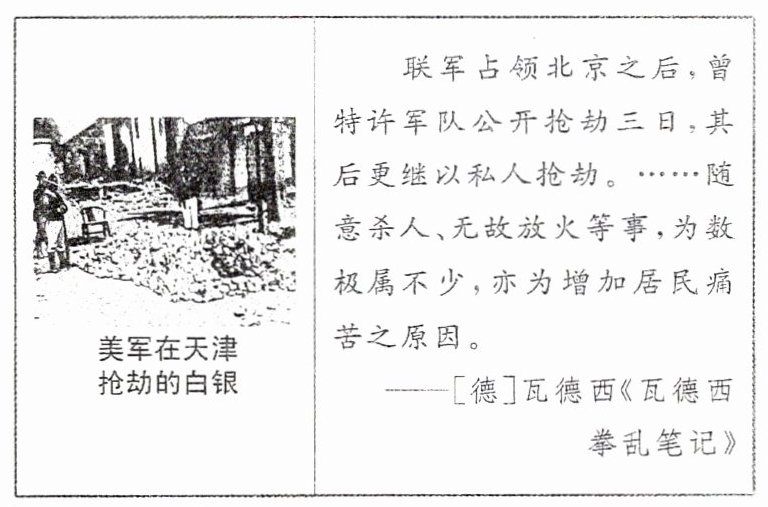 美军在天津
抢劫的白银
联军占领北京之后，曾
特许军队公开抢劫三日，其
后更继以私人抢劫。……随
意杀人、无故放火等事，为数
极属不少，亦为增加居民痛
苦之原因。
——[德]瓦德西《瓦德西
拳乱笔记》